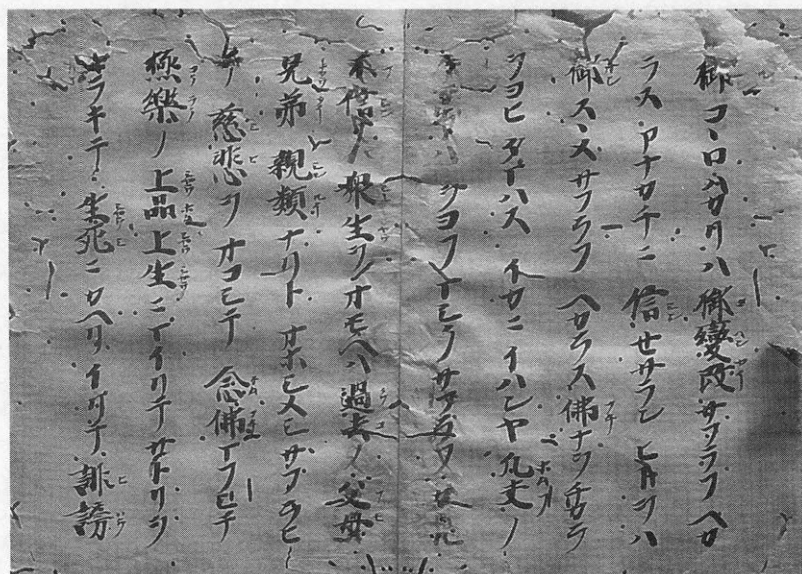 御コヽロハカリハ 御變改サフラフヘカ
ラス アナカチニ 信セサラム ヒトヲハ
御スヽメサフラフ ヘカラス 佛ナヲチカラ
ヲヨヒタマハス イカニイハムヤ凡夫ノ
ヲヨフマシク
不信ノ衆生ヲオモヘハ過去ノ父母
兄弟 親類ナリト オホシメシサフラヒ
テ 慈悲ヲ オコシテ 念佛マフシテ
極樂ノ上品上生ニマイリテサトリヲ
ヒラキテ 生死ニカヘリイリテ 誹謗